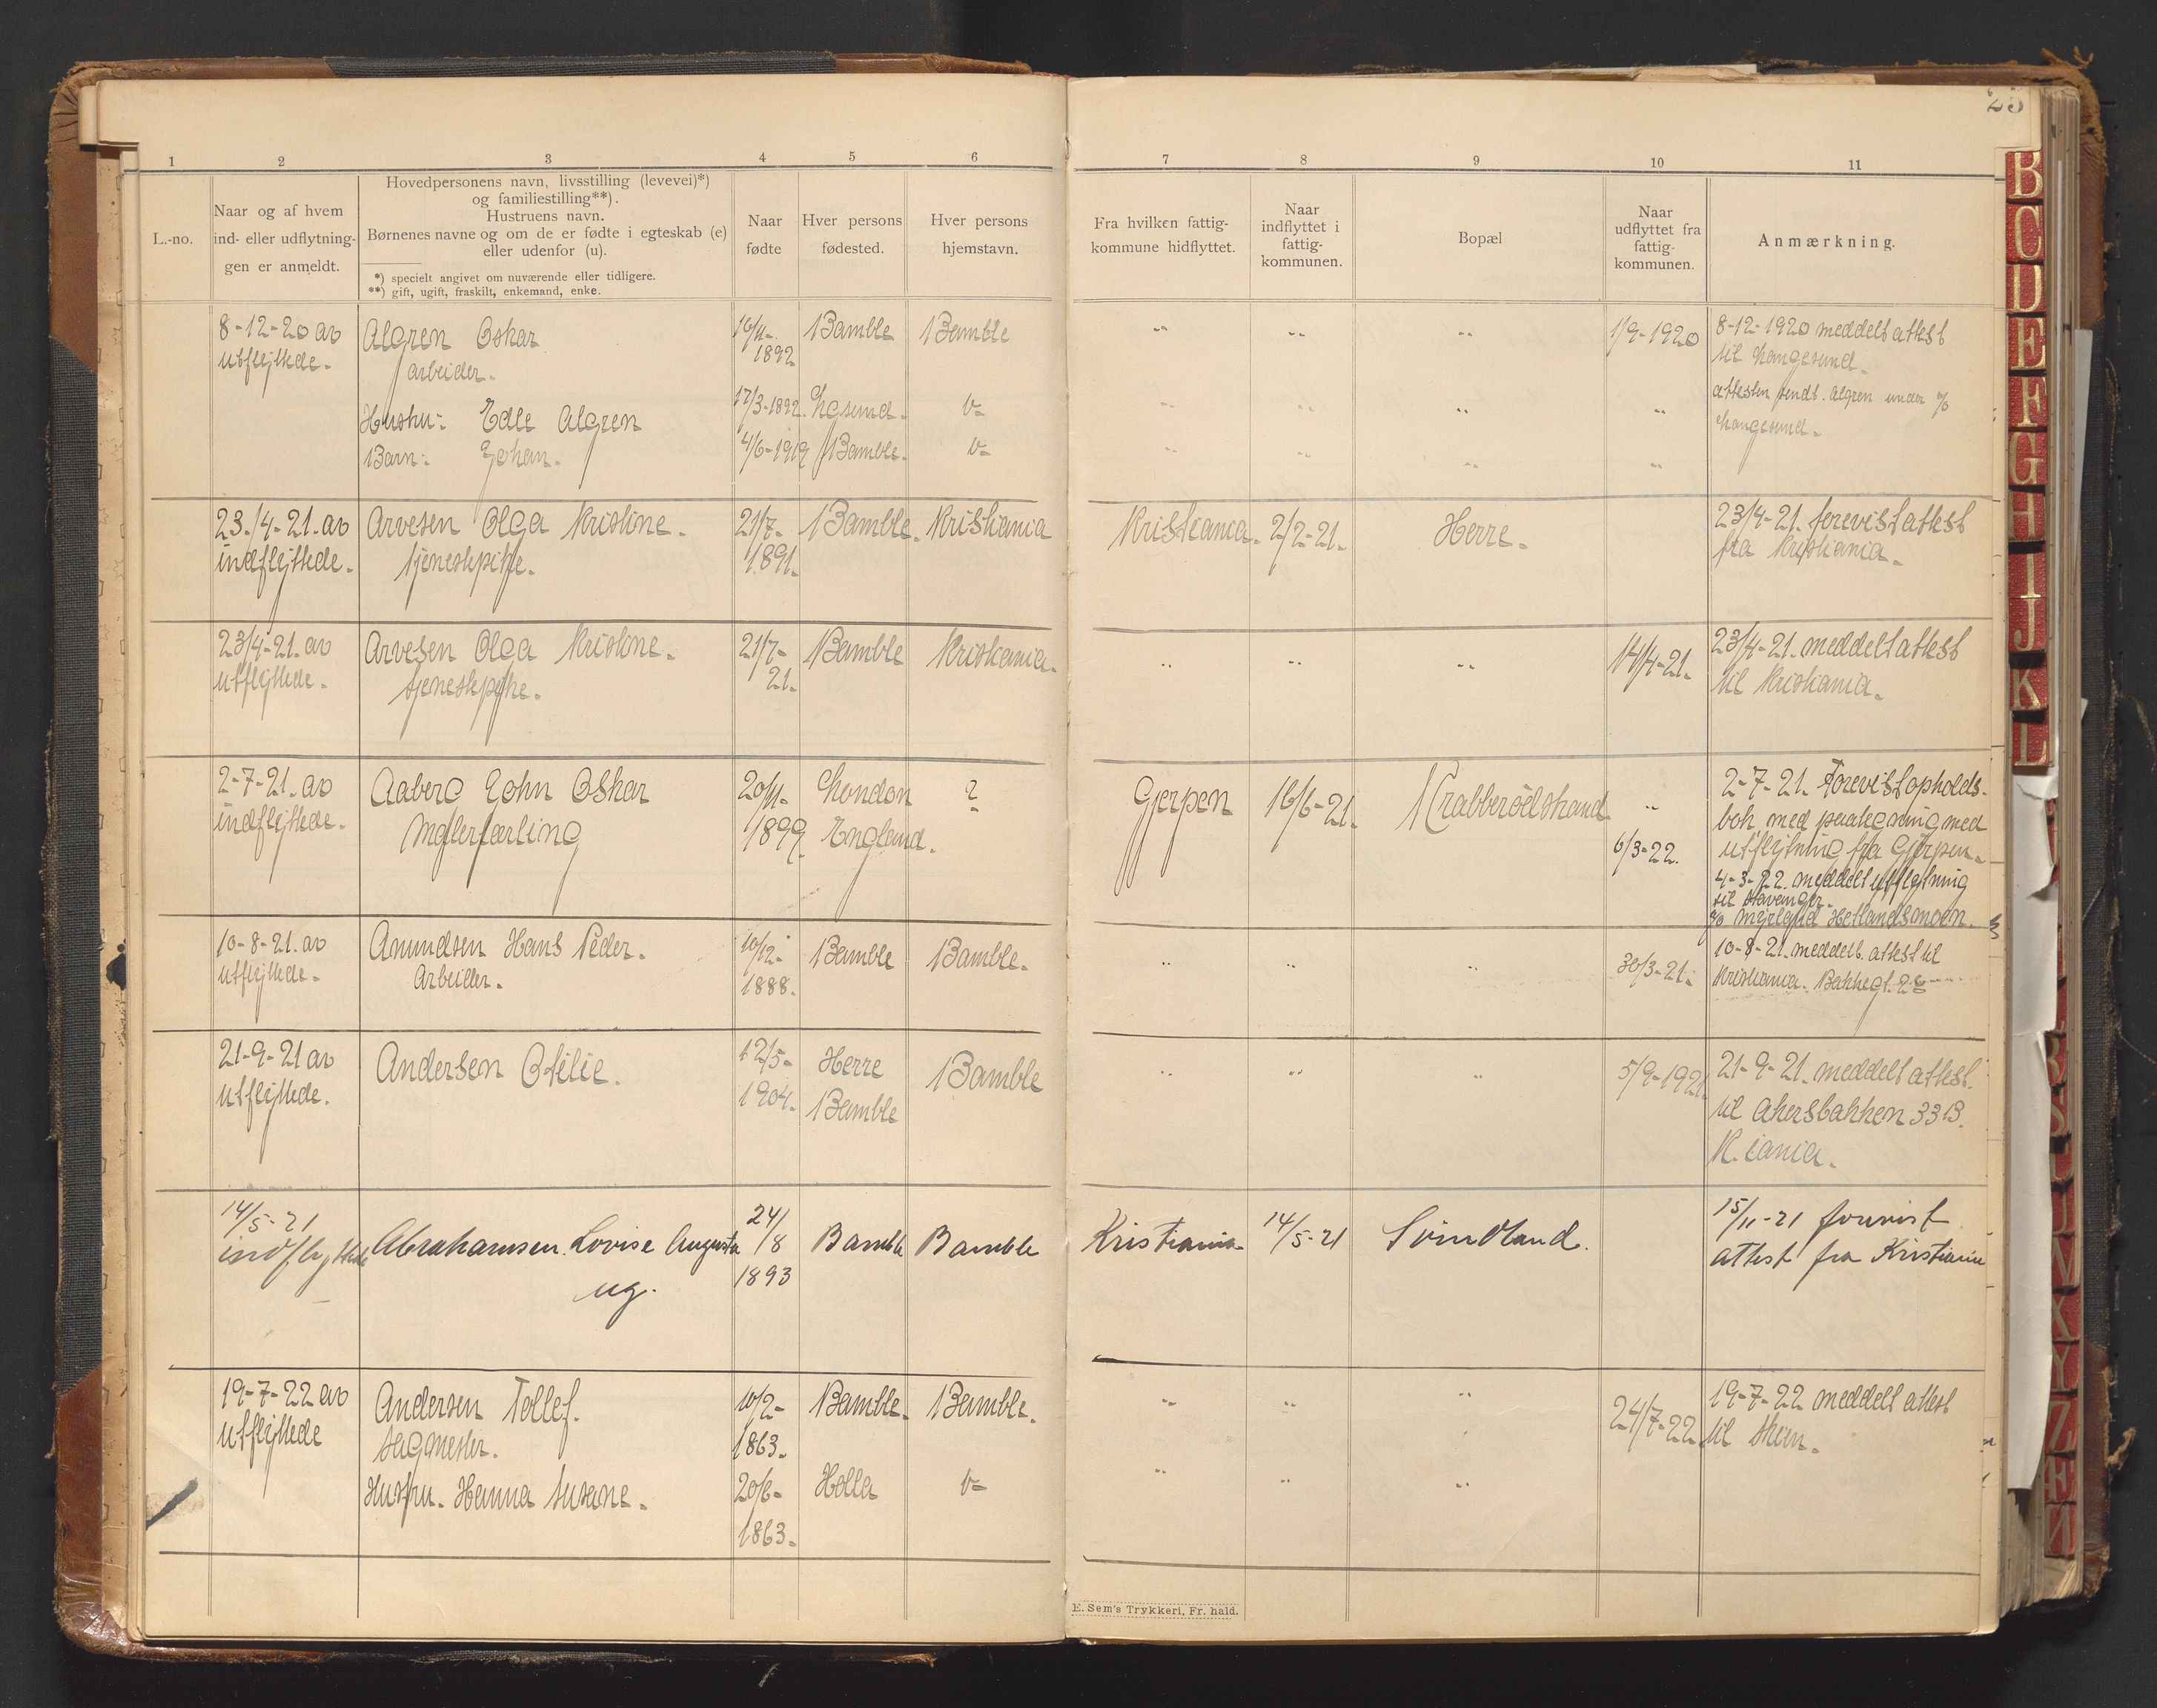 23
1 2 3 4 5 6 7 8 9 10 11
L.-no.
Naar og af hvem
ind- eller udflytnin-
gen er anmeldt.
Hovedpersonens navn, livsstilling (levevei)*)
og familiestilling**).
Hustruens navn.
Børnenes navne og om de er fødte i egteskab (e)
eller udenfor (u).
*) specielt angivet om nuværende eller tidligere.
**) gift, ugift, fraskilt, enkemand, enke.
Naar
fødte
Hver persons
fødested.
Hver persons
hjemstavn.
Fra hvilken fattig-
kommune hidflyttet.
Naar
indflyttet i
fattig-
kommunen.
Bopæl
Naar
udflyttet fra
fattig-
kommunen.
Anmærkning.
8-12-20 av
utflyttede.
Algren Oskar
arbeider.
1892
Bamble
Bamble
1/9-1920
8-12-1920 meddelt attest
til Haugesund.
Hustru: Edle Algren
17/3-1892.
attesten sendt. Algren under %
Haugesund.
Barn: Johan.
4/6-1919
Bamble.
23./4-21. av
indflyttede.
Arvesen Olga Kristine.
tjenestepike.
21/7-
1891.
Bamble.
Kristiania
Kristiania.
2/2-21.
Herre.
23/4-21. forevist attest
fra Kristiania.
23/4-21. av
utflyttede.
Arvesen Olga Kristine.
tjenestepike.
21/7-
21.
Bamble
Kristiania.
14/4-21.
23/4-21. meddelt attest
til Kristiania.
2-7-21. av
indflyttede.
Aaberg John Oskar
Møllerlærling
20/11-
1899.
London
England.
?
Gjerpen
16/6-21.
Krabberødstrand
6/3-22.
2-7-21. Forevist opholds-
bok med paategning med
utflytning fra Gjerpen.
4-3-22. meddelt utflytning
til Stavanger.
10-8-21. av
utflyttede.
Amundsen Hans Peder.
Arbeider.
10/12-
1888.
Bamble
Bamble.
30/3-21.
10-8-21. meddelt attest til
Kristiania. Bakkegt. 28
21-9-21 av
utflyttede.
Andersen Otilie.
12/5-
1904.
Herre
Bamble
Bamble
5/9-1921
21-9-21. meddelt attest.
til Akersbakken 33 B.
K.iania.
14/5-21
indflyttede
Abrahamsen. Lovise Augusta
ug.
24/8
1893
Bamble
Bamble
Kristiania
14/5-21
Svindland.
15/11-21 forevist
attest fra Kristiania
19-7-22 av
utflyttede
Andersen Tollef.
sagmester.
10/2-
1863.
Bamble.
Bamble.
24/7-22.
19-7-22 meddelt attest
til Skien.
Hustru. Hanna Susane.
20/6-
1863.
Holla
E. Sem's Trykkeri, Fr.hald.
B
C
D
E
F
G
H
I
J
K
L
X
Y
Z
Æ